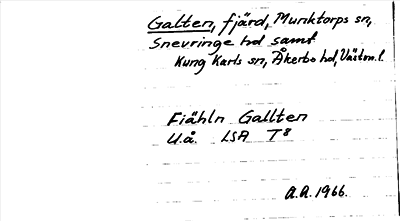 Galten, fjärd, Munktorps sn,
Snevringe hd samt
Kung Karls sn, Åkerbo hd, Västm.l.
Fiähln Gallten
U.å. LSA T8
A.R. 1966.